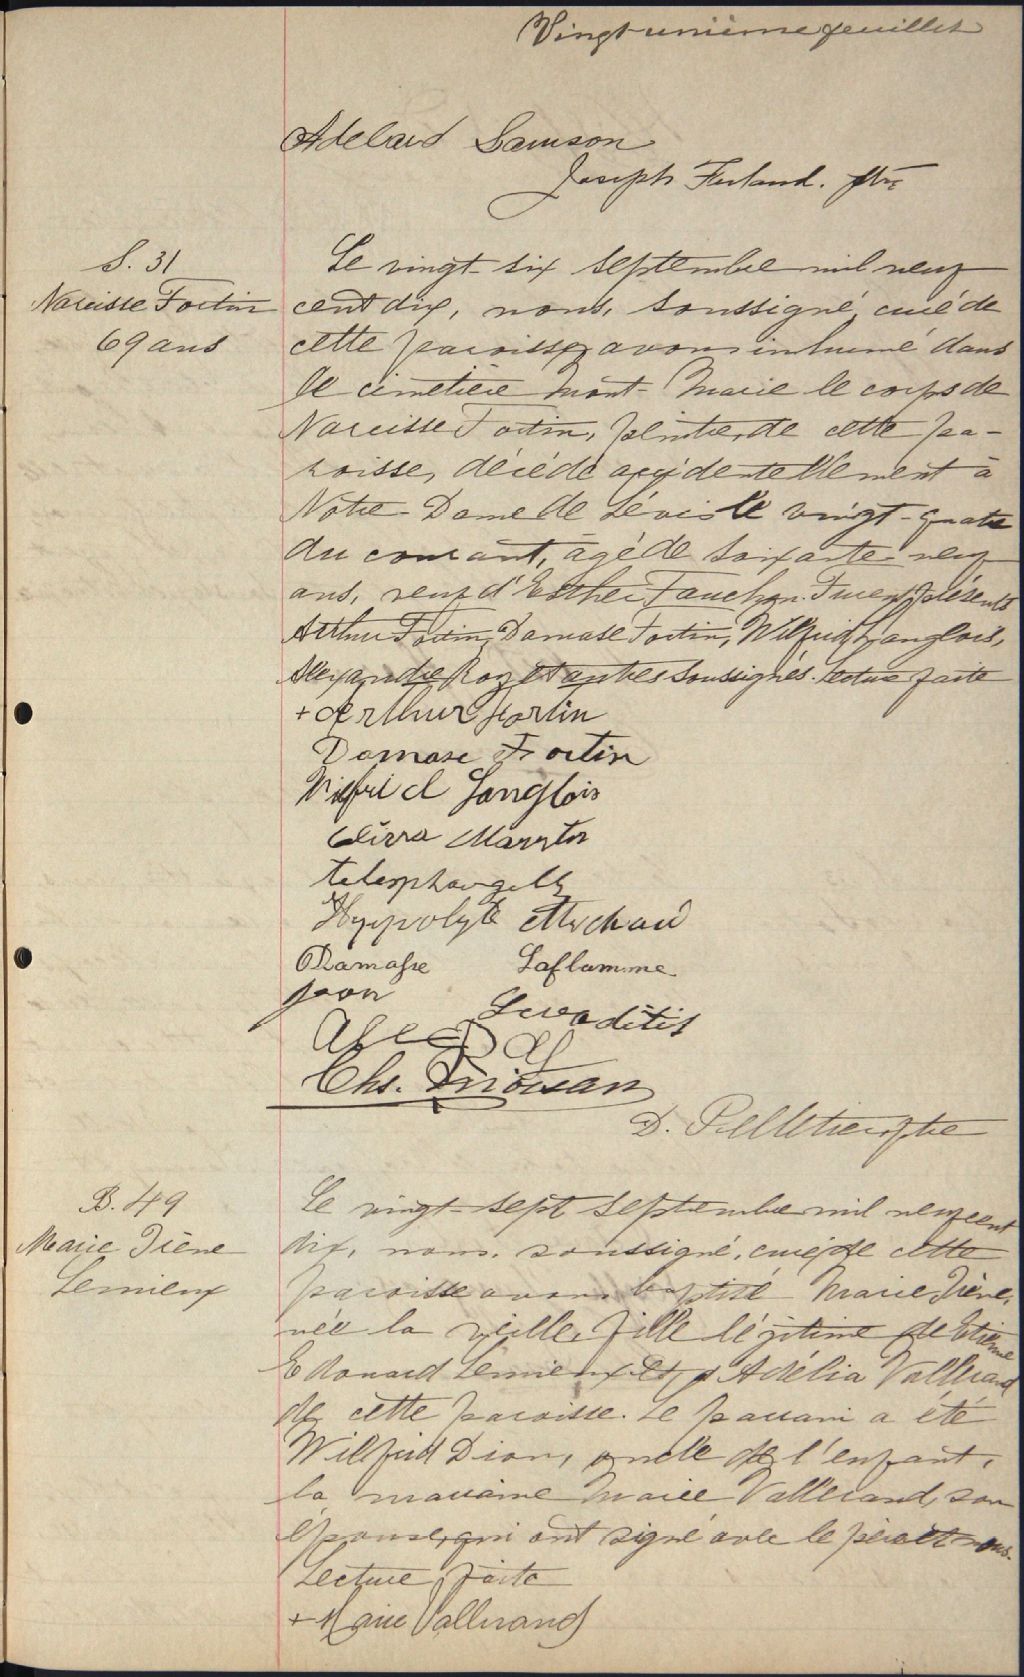 Vingt-unième feuillet
Adelard Samson
Joseph Ferland. ptre
S. 31
Narcisse Fortin
69 ans
Le vingt-six septembre mil neuf
cent dix, nous, soussigné, curé de
cette paroisse, avons inhumé dans
le cimetière Mont-Marie le corps de
Narcisse Fortin, peintre, de cette pa-
roisse, décédé accidentellement à
Notre-Dame de Lévis le vingt-quatre
du courant, âgé de soixante-neuf
ans, veuf d'Esther Fauchon. Furent présents
Arthur Fortin, Damase Fortin, Wilfrid Langlois,
Alexandre Roy et autres soussignés. Lecture faite
+ Arthur Fortin
Damase Fortin
Wilfrid Langlois
Hyppolyte Michaud
Damase Laflamme
Jean
Alex Roy
Chs.
D. Pelletier ptre
B. 49
Marie Irène
Lemieux
Le vingt-sept septembre mil neuf cent
dix, nous, soussigné, curé de cette
paroisse avons baptisé Marie Irène,
née la veille, fille légitime de Etienne
Edouard Lemieux et d'Adélia Vallerand
de cette paroisse. Le parrain a été
Wilfrid Dion, oncle de l'enfant,
la marraine Marie Vallerand, son
épouse, qui ont signé avec le père et nous.
Lecture faite
+ Marie Vallerand